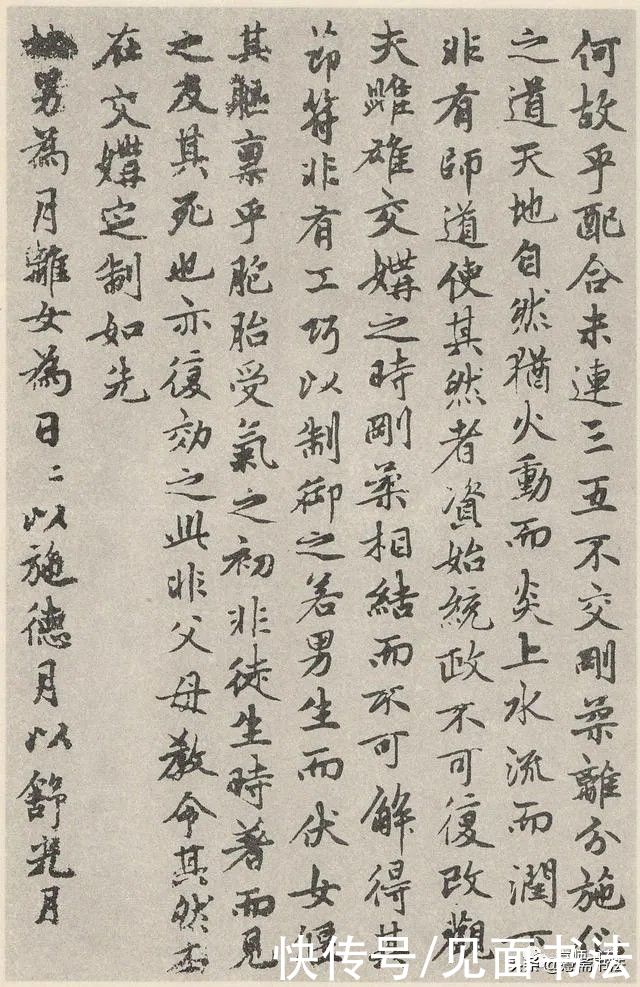 何故乎配合未連三五不交剛柔離分施化
之道天地自然猶火動而炎上水流而潤下
非有師道使其然者資始統政不可復改觀
夫雌雄交媾之時剛柔相結而不可解得其
節符非有工巧以制御之若男生而伏女偃
其軀稟乎胞胎受氣之初非徒生時著而見
之及其死也亦復効之此非父母教令其然本
在交媾定制如先
男為月離女為日〻以施德月以舒光月
快传号/见面书法